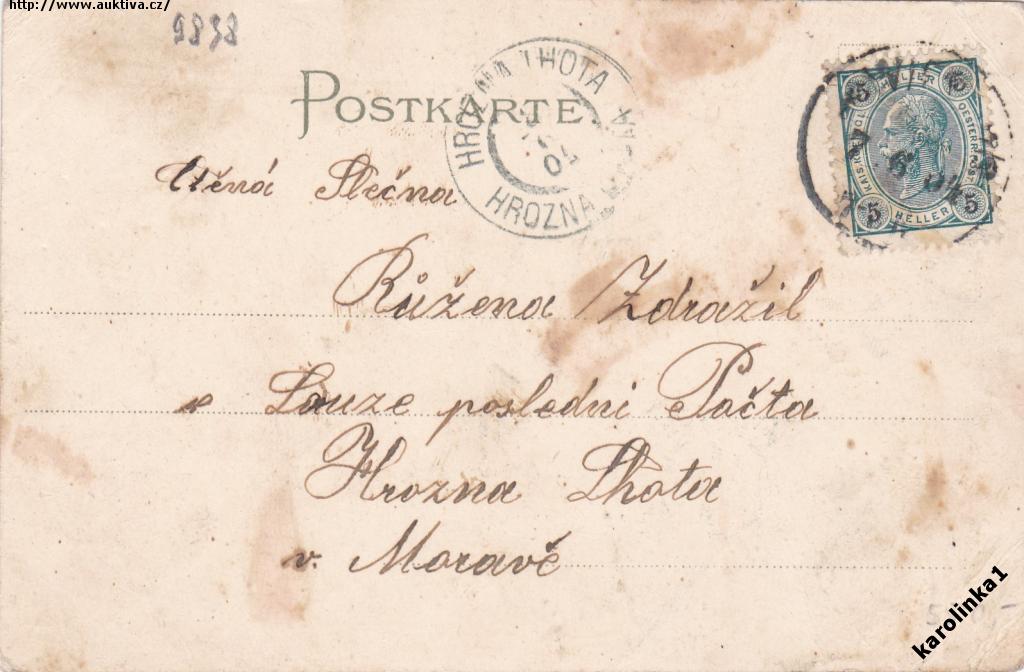 http://www.auktiva.cz/
9838
POSTKARTE.
HROZNA LHOTA
HROZNA
04
5 HELLER 5
5 HELLER 5
Ctěná Slečna
Růžena Zdražil
Louze poslední Pačta
Hrozna Lhota
v. Moravě
karolinka1